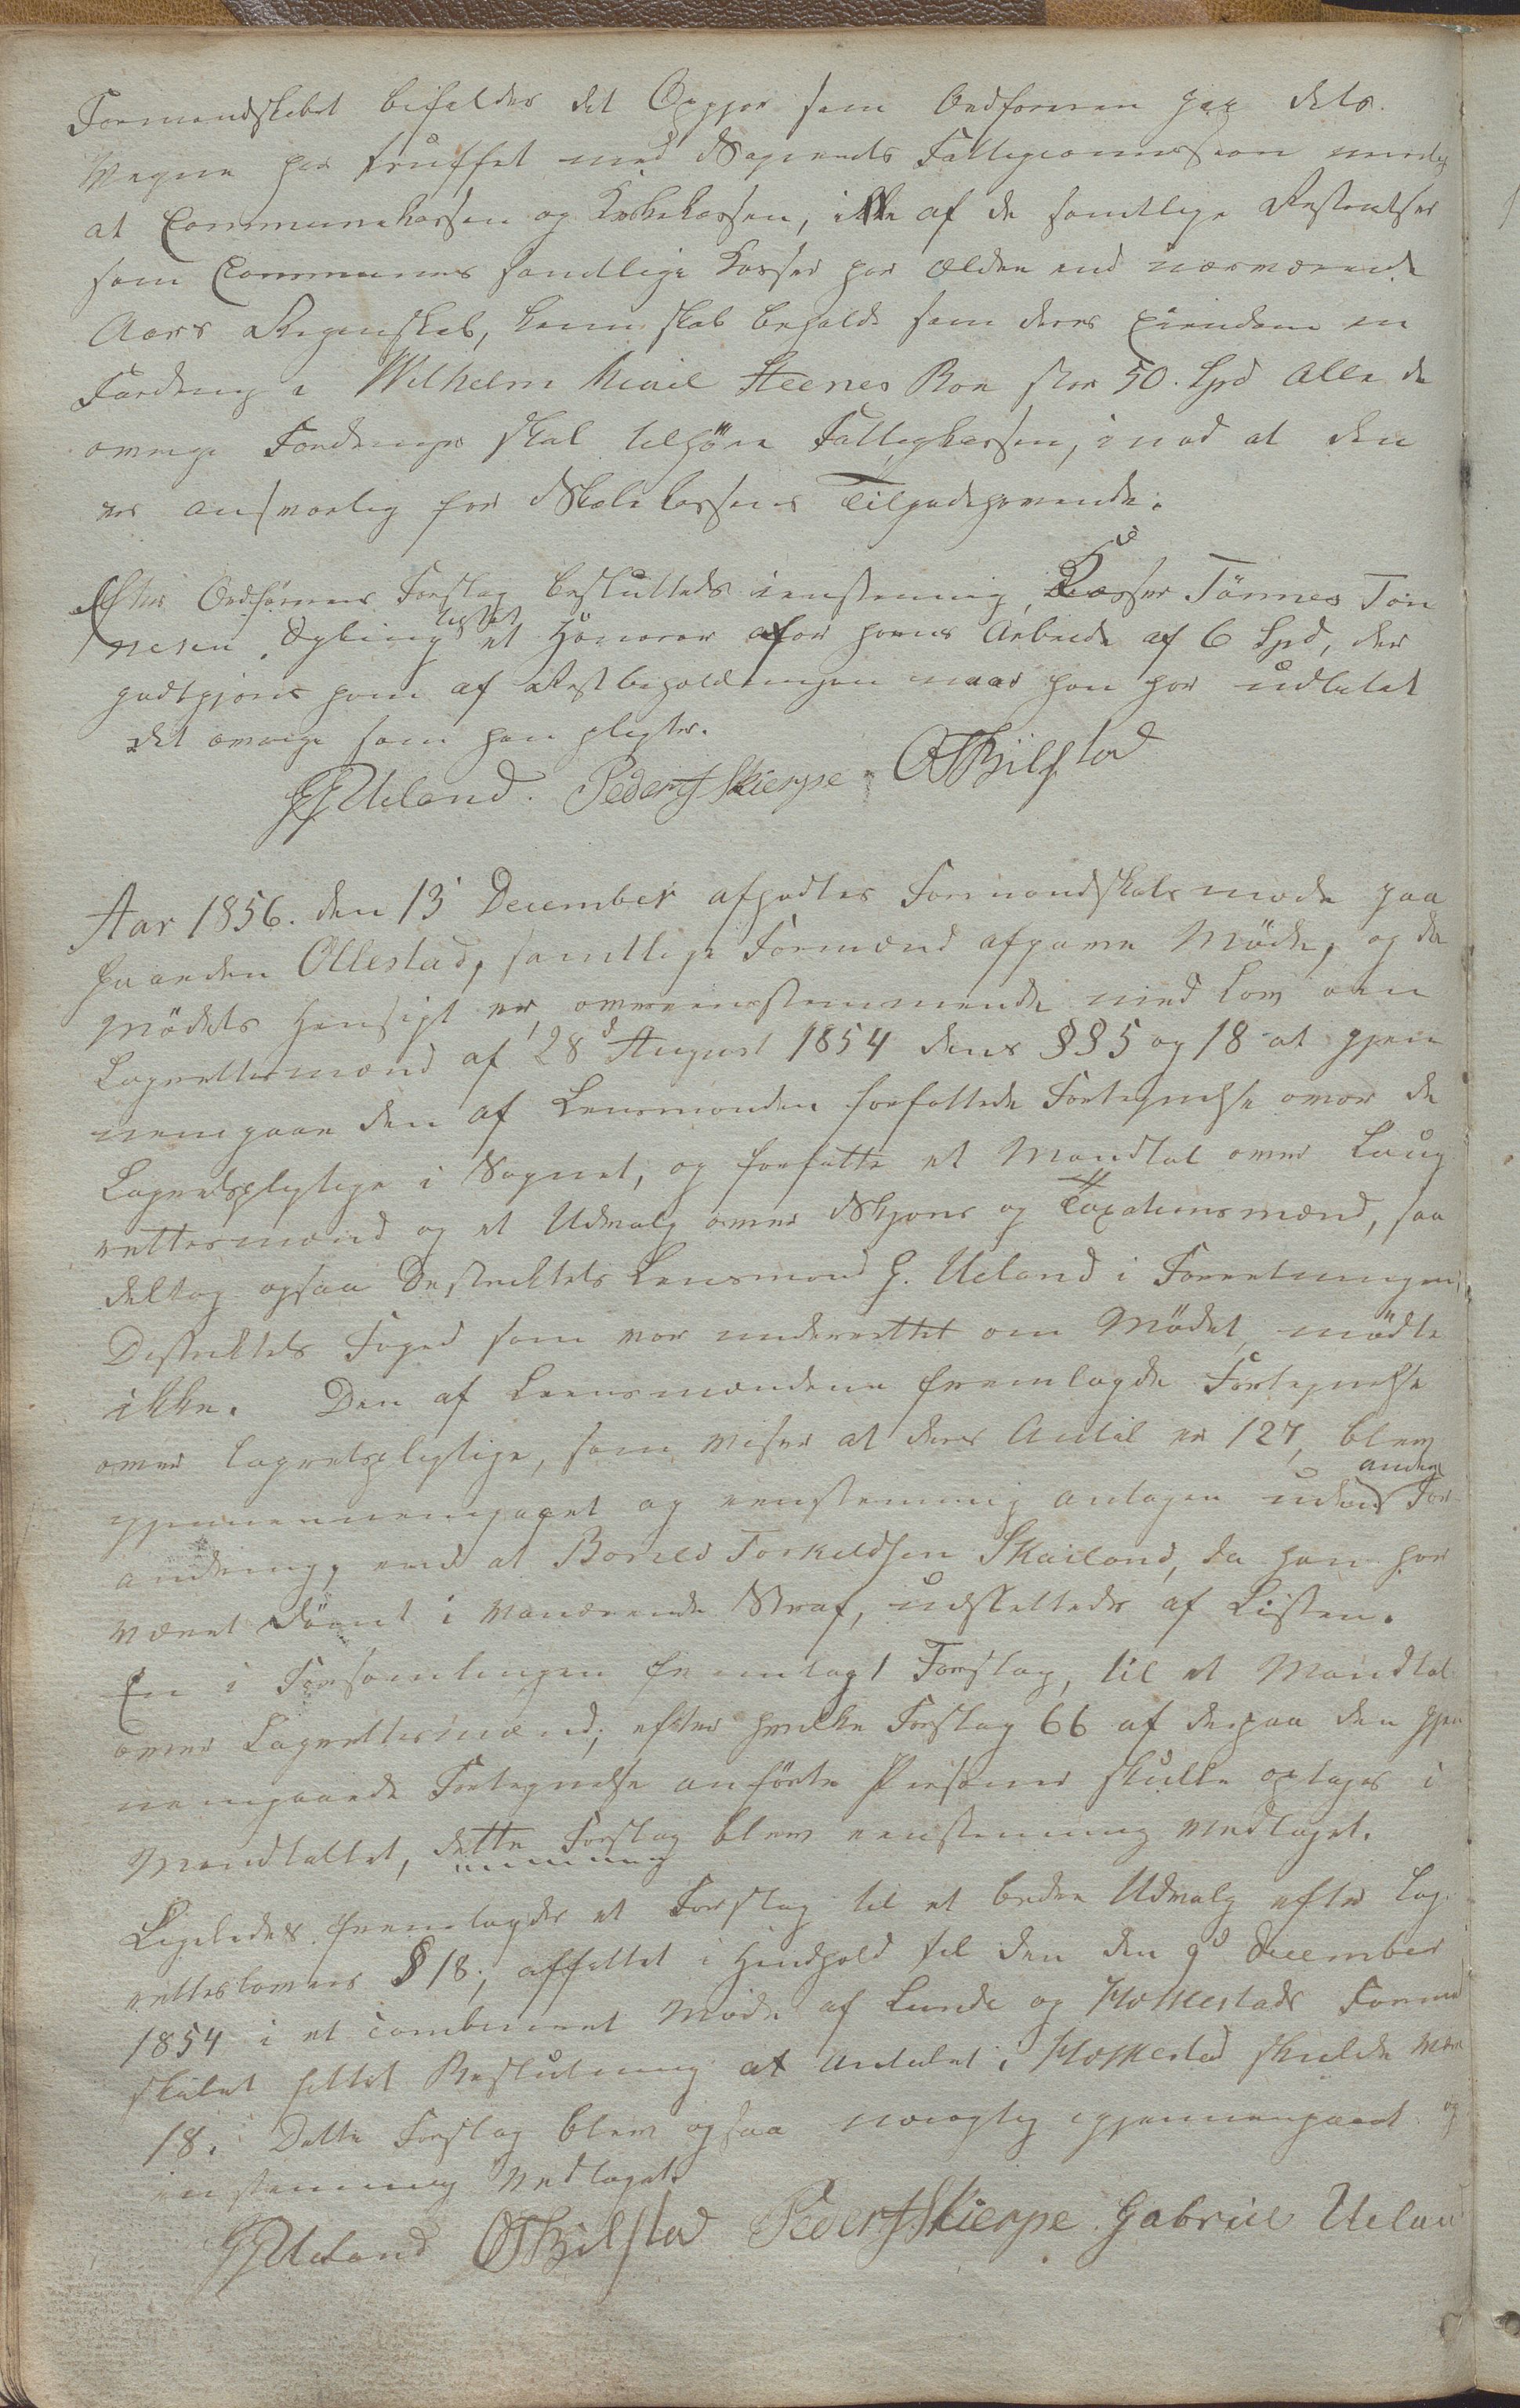 Formandskabet bifaldes det Opgjør som Ordføreren paa dets
Vegne har truffet med Sognets Fattigcommission nemlig
at Communekassen og Kirkekassen, ikke af de samtlige Restentser
som Communens samtlige Kasser har ældre end nærværende
Aars Regnskab, kun skal beholde som deres Eiendom en
Fordring i Wilhelm Steenes Boe stor 50. Spd Alle de
øvrige Fordringer skal tilhøre Fattigkassen, imod at den
er ansvarlig for Skolekassens Tilgodehavende.
Efter Ordførerens Forslag besluttedes eenstemmig, Kasser Tönnes Tön
nesen Ögling tilstaet et Honorar for hans Arbeide af 6 Spd, der
godtgjøres ham af Restbeholdningen naar han har udbetalt
det øvrige som han pligter.
GGUeland. Peder J Skierpe. OTBilstad
Aar 1856. den 13 December afholdtes Formandskabsmøde paa
Gaarden Ollestad, samtlige Formænd afgave Møde, og da
Mödets Hensigt er, overeensstemmende med Lov om
Lagrettesmænd af 28d August 1854 dens §§ 5 og 18 at gjen
nemgaae den af Lensmanden forfattede Fortegnelse over de
Lagretspligtige i Sognet, og forfatte et Mandtal over Laug
rettesmænd og et Udvalg over Skjøns og Taxationsmænd, saa
deltog ogsaa Destriktets Lensmand G. Ueland i Forretningen,
Destriktets Foged som var underrettet om Mødet, mödte
ikke. Den af Leensmændene fremlagde Fortegnelse
over lagretspligtige, som viser at deres Antal er 127, blev
gjennemgaaet og eenstemmig antagen uden anden For
andring, end at Borild Torkildsen Skailand, da han har
været dömt i vanærende Straf, udslettedes af Listen.
En i Forsamlingen fremlagt Forslag, til et Mandtal
over Lagrettesmænd, efter hvilke Forslag 66 af de paa den gjen
nemgaaede Fortegnelse anförte Personer skulle optages i
Mandtallet, dette Forslag blev eenstemmig vedtaget.
Ligeledes fremlagdes et Forslag til et bedre Udvalg efter Lag
retteslovens § 18, affattet i Hendhold til den den 9d December
1854 i et combineret Møde af Lunde og Heskestads Formand
skabet fattet Beslutning at Antalet i Heskestad skulde være
18. Dette Forslag blev ogsaa nøiagtig igjennemgaaet og
eenstemmig vedtaget.
GGUeland OTBilstad Peder J Skierpe. Gabriel Ueland